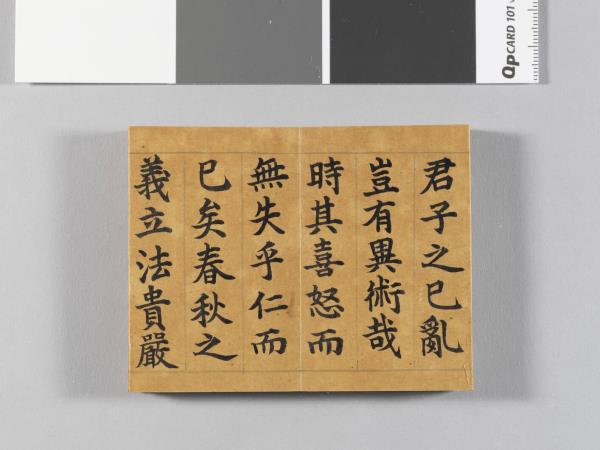 君子之已亂
豈有異術哉
時其喜怒而
無失乎仁而
已矣春秋之
義立法貴嚴
QpCARD 101